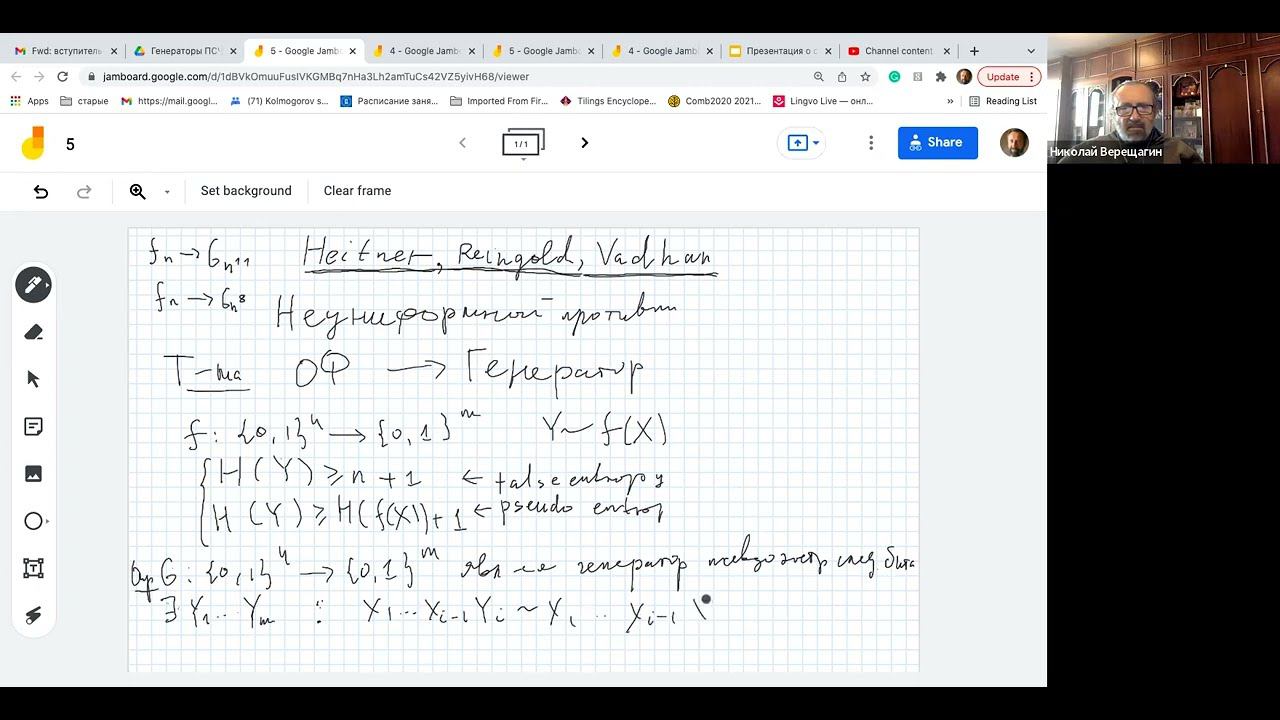 Fwd: вступитель
Генераторы ПСЧ
5 - Google Jamb
4 - Google Jamb
5 - Google Jamb
4 - Google Jamb
Презентация о с
Channel content
jamboard.google.com/d/1dBVkOmuuFusIVKGMBq7nHa3Lh2amTuCs42VZ5yivH68/viewer
Update
Apps
старые
https://mail.googl...
(71) Kolmogorov s...
Расписание заня...
Imported From Fir...
Tilings Encyclope...
Comb2020 2021...
Lingvo Live — онл...
»
Reading List
5
1/1
Share
Николай Верещагин
Set background
Clear frame
fₙ → Gₙ¹¹ Heitner, Reingold, Vadhan
fₙ → Gₙ⁸ Неуниформный противн
Т-ма ОФ → Генератор
f: {0,1}ⁿ → {0,1}ᵐ Y ~ f(X)
H(Y) ≥ n+1 ← false entropy
H(Y) ≥ H(f(X))+1 ← pseudo entrop
Опр G: {0,1}ⁿ → {0,1}ᵐ явл-ся генератор псевдоэнтр след. бита
∃ Y₁...Yₘ : X₁...Xᵢ₋₁Yᵢ ~ X₁...Xᵢ₋₁ \